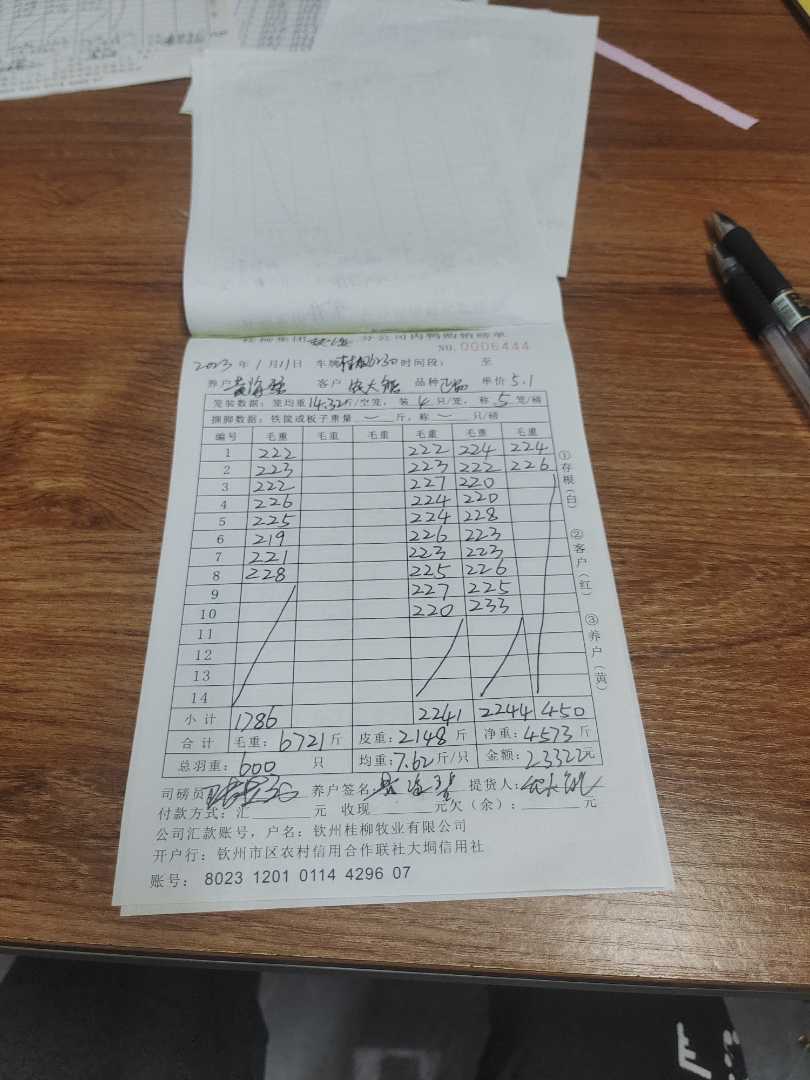 分公司肉鸭购销磅单
NO. 0006444
2023 年 1 月 11 日 车牌 6230 时间段： 至
养户 客户 品种 单价 5.1
笼装数据：笼均重 14.32 斤/空笼，装 4 只/笼，称 5 笼/磅
捆脚数据：铁筐或板子重量 斤，称 只/磅
编号 毛重 毛重 毛重 毛重 毛重 毛重
1 222 222 224 224
2 223 223 222 226
3 222 227 220
4 226 224 220
5 225 224 228
6 219 226 223
7 221 223 223
8 228 225 226
9 227 225
10 220 233
11
12
13
14
小计 1786 2241 2244 450
合计 毛重：6721 斤 皮重：2148 斤 净重：4573 斤
总羽重：600 只 均重：7.62 斤/只 金额：23322 元
司磅员 养户签名 提货人：
付款方式：汇 元 收现 元欠（余）： 元
公司汇款账号，户名：钦州桂柳牧业有限公司
开户行：钦州市区农村信用合作联社大垌信用社
账号： 8023 1201 0114 4296 07
①存根（白）
②客户（红）
③养户（黄）